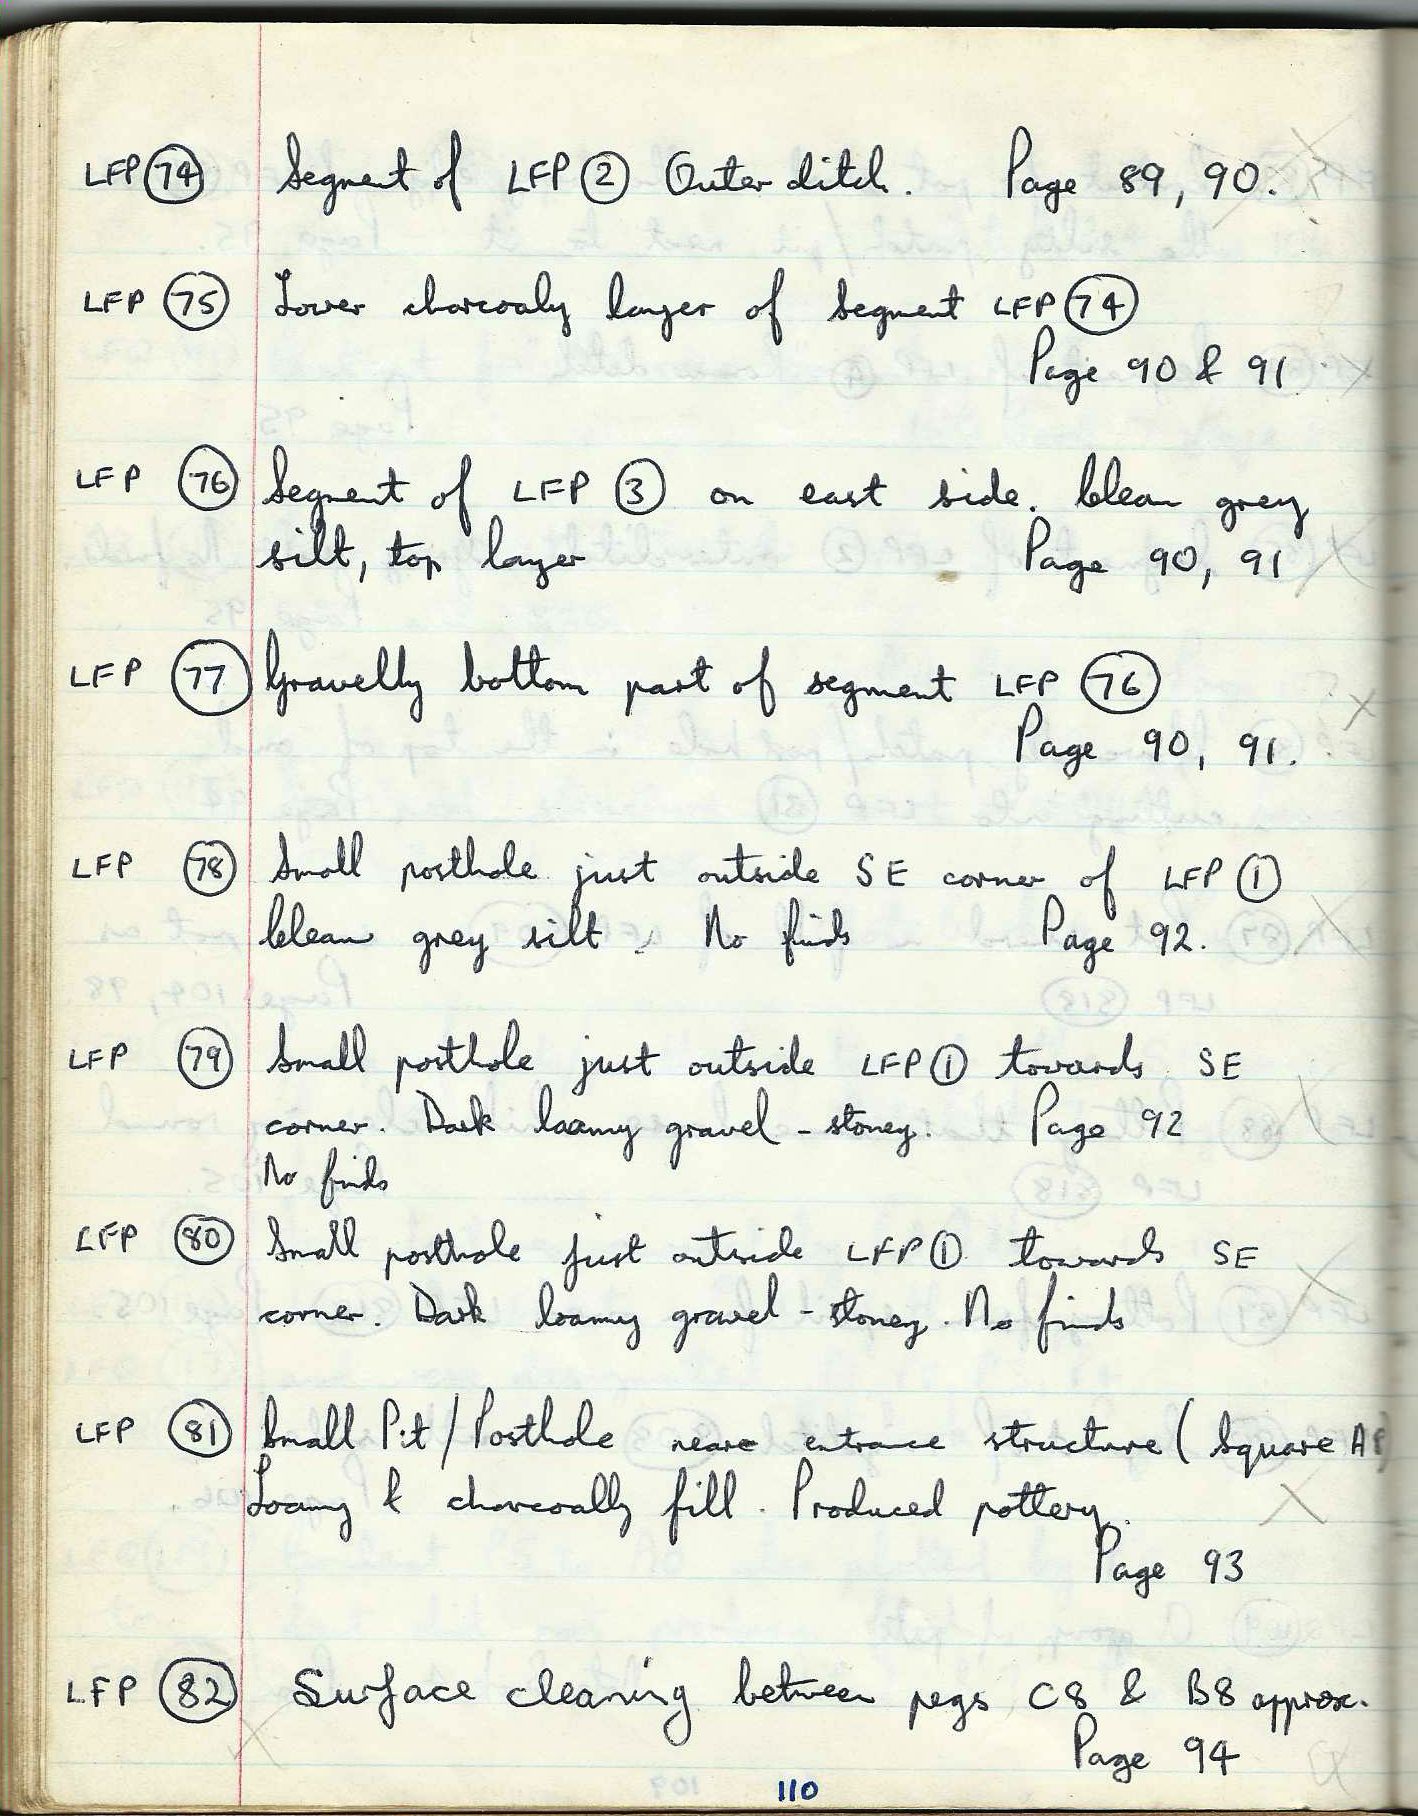 LFP 74 Segment of LFP 2 Outer ditch. Page 89, 90.
LFP 75 Lower charcoaly layer of segment LFP 74
Page 90 & 91
LFP 76 Segment of LFP 3 on east side. Clean grey
silt, top layer Page 90, 91
LFP 77 Gravelly bottom part of segment LFP 76
Page 90, 91.
LFP 78 Small posthole just outside SE corner of LFP 1
Clean grey silt. No finds Page 92.
LFP 79 Small posthole just outside LFP 1 towards SE
corner. Dark loamy gravel - stoney. Page 92
No finds
LFP 80 Small posthole just outside LFP 1 towards SE
corner. Dark loamy gravel - stoney. No finds
LFP 81 Small Pit / Posthole near entrance structure ( Square A8)
Loamy & charcoally fill. Produced pottery.
Page 93
LFP 82 Surface cleaning between pegs C8 & B8 approx.
Page 94
110